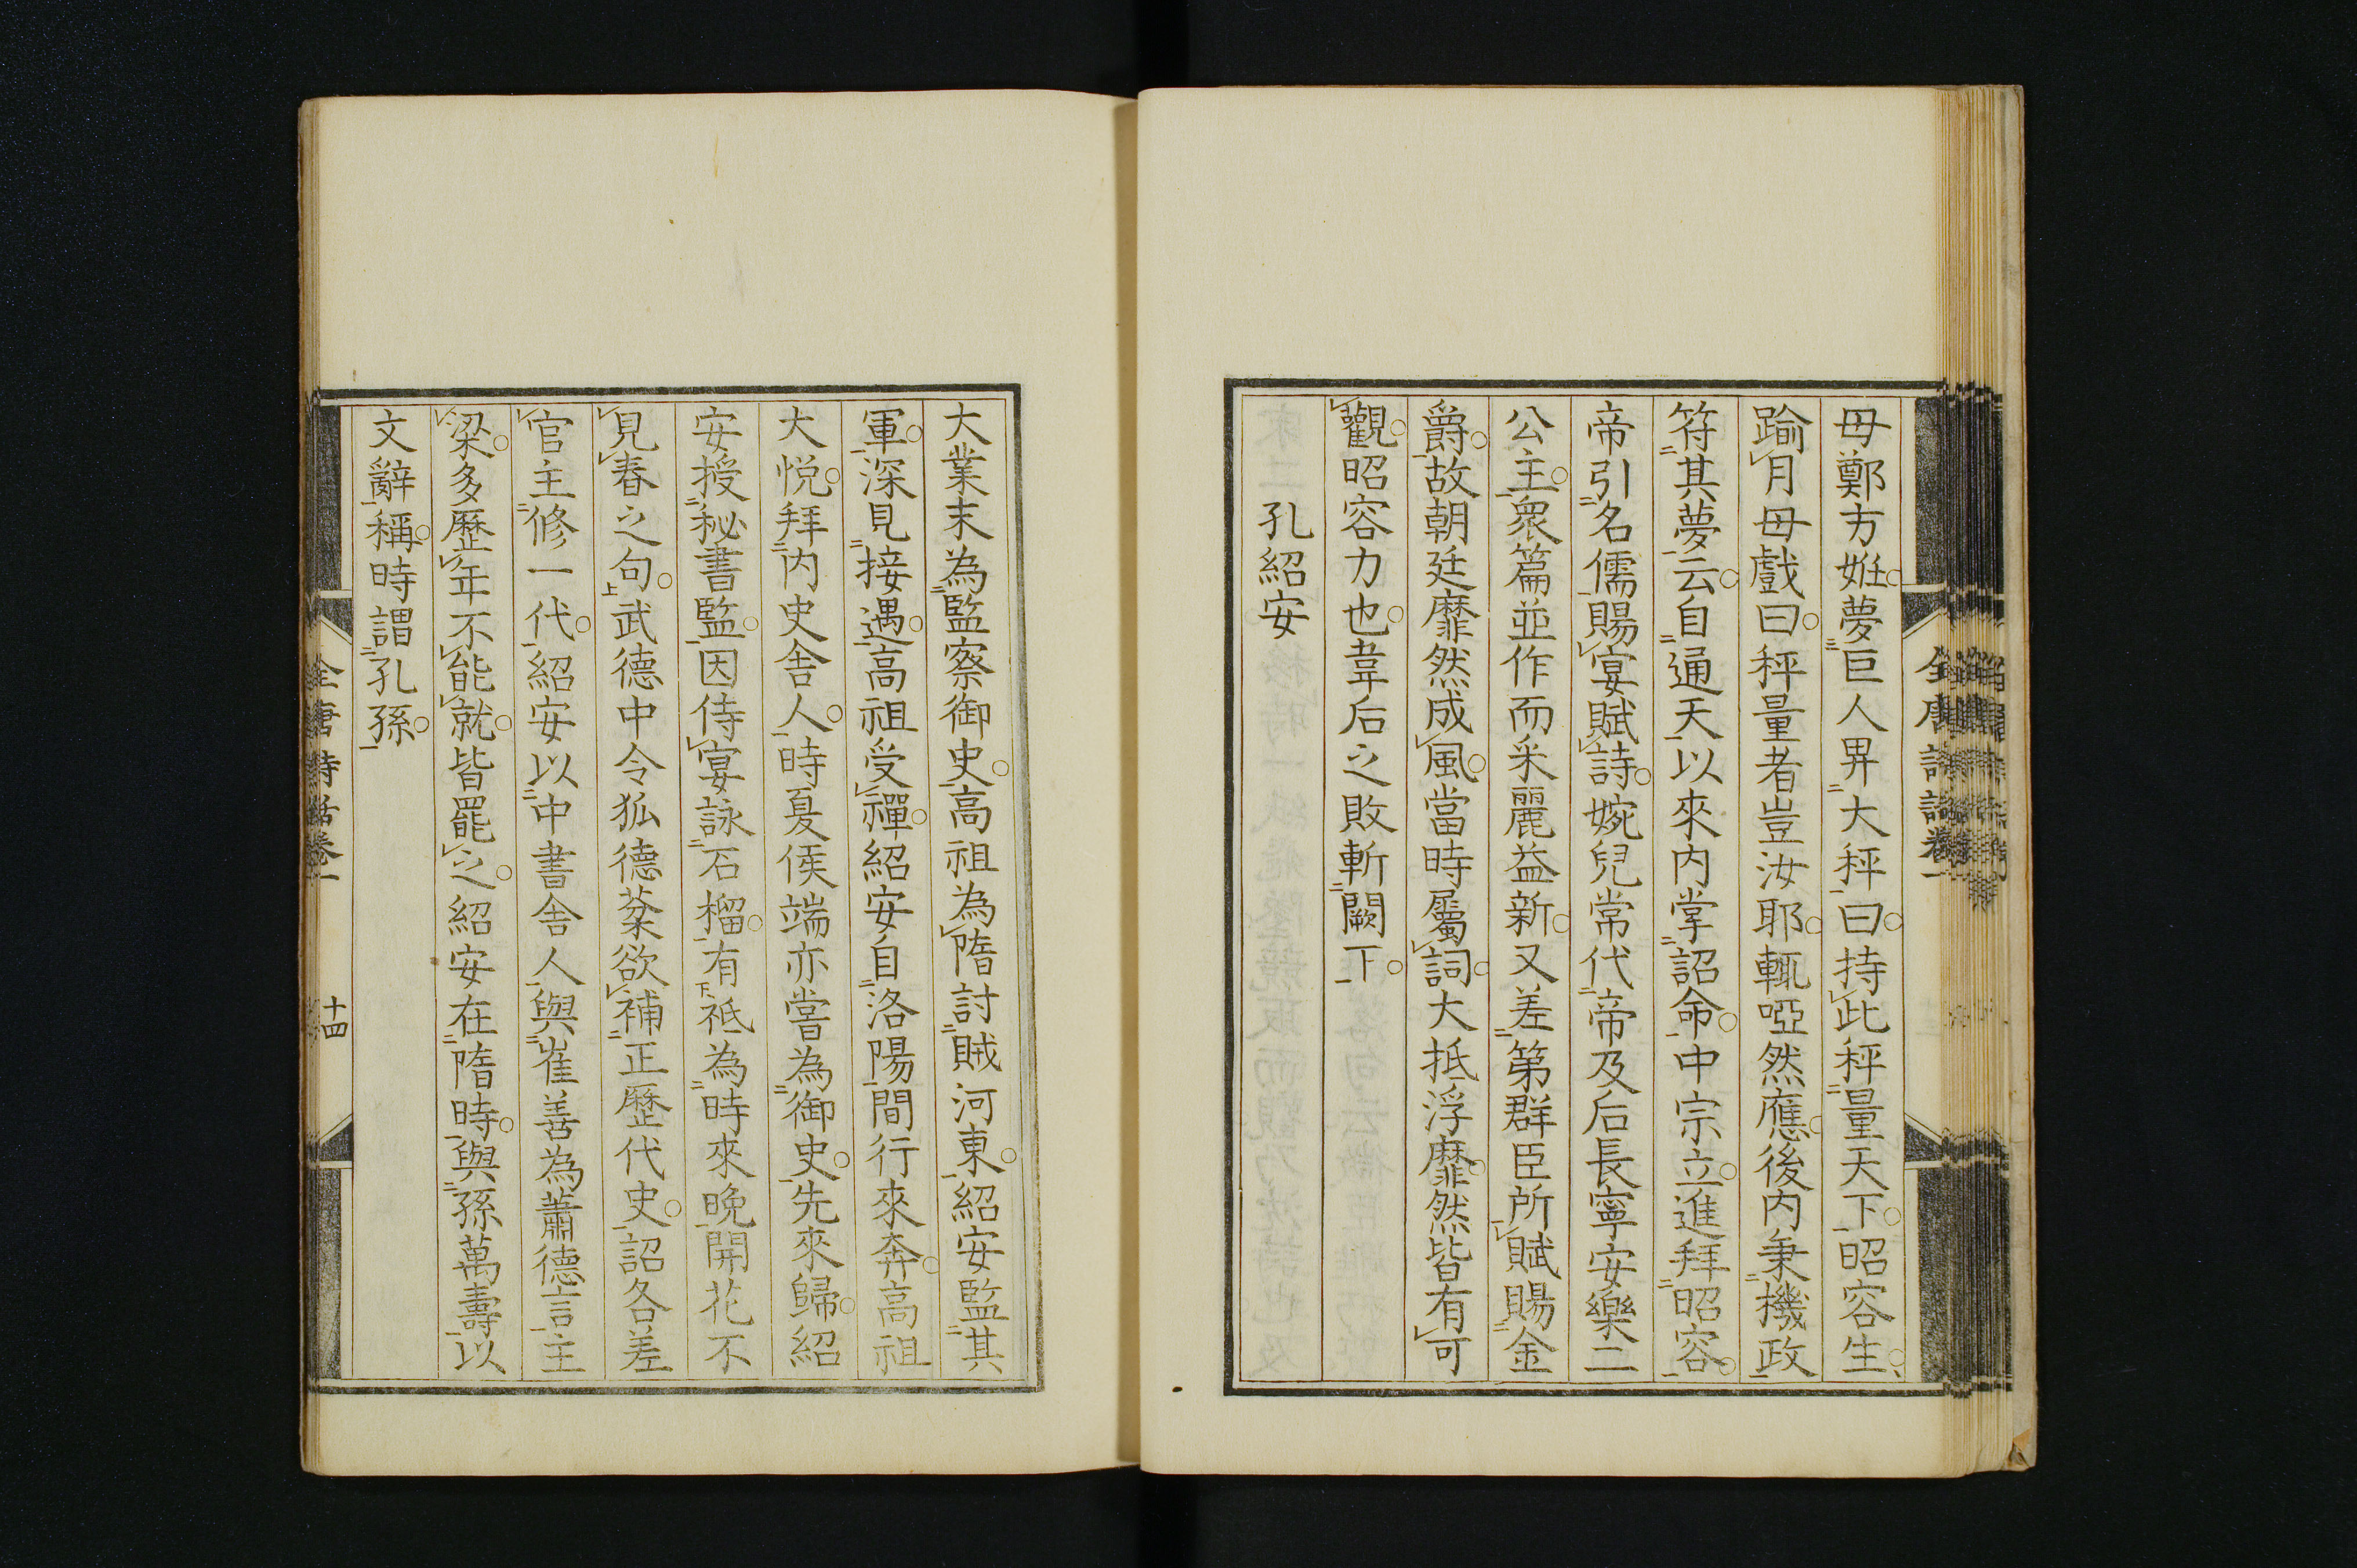 母鄭方姙夢巨人畀大秤曰持此秤量天下昭容生
踰月母戲曰秤量者豈汝耶輒啞然應後内秉機政
符其夢云自通天以來内掌詔命中宗立進拜昭容
帝引名儒賜宴賦詩婉兒常代帝及后長寧安樂二
公主衆篇並作而采麗益新又差第群臣所賦賜金
爵故朝廷靡然成風當時屬詞大抵浮靡然皆有可
觀昭容力也韋后之敗斬闕下
孔紹安
大業末為監察御史高祖為隋討賊河東紹安監其
軍深見接遇高祖受禪紹安自洛陽間行來奔高祖
大悅拜内史舎人時夏侯端亦嘗為御史先來歸紹
安授秘書監因侍宴詠石榴有祗為時來晚開花不
見春之句武德中令狐德棻欲補正歷代史詔各差
官主修一代紹安以中書舎人與崔善為蕭德言主
梁多歷年不能就皆罷之紹安在隋時與孫萬壽以
文辭稱時謂孔孫
全唐詩話卷一
十四